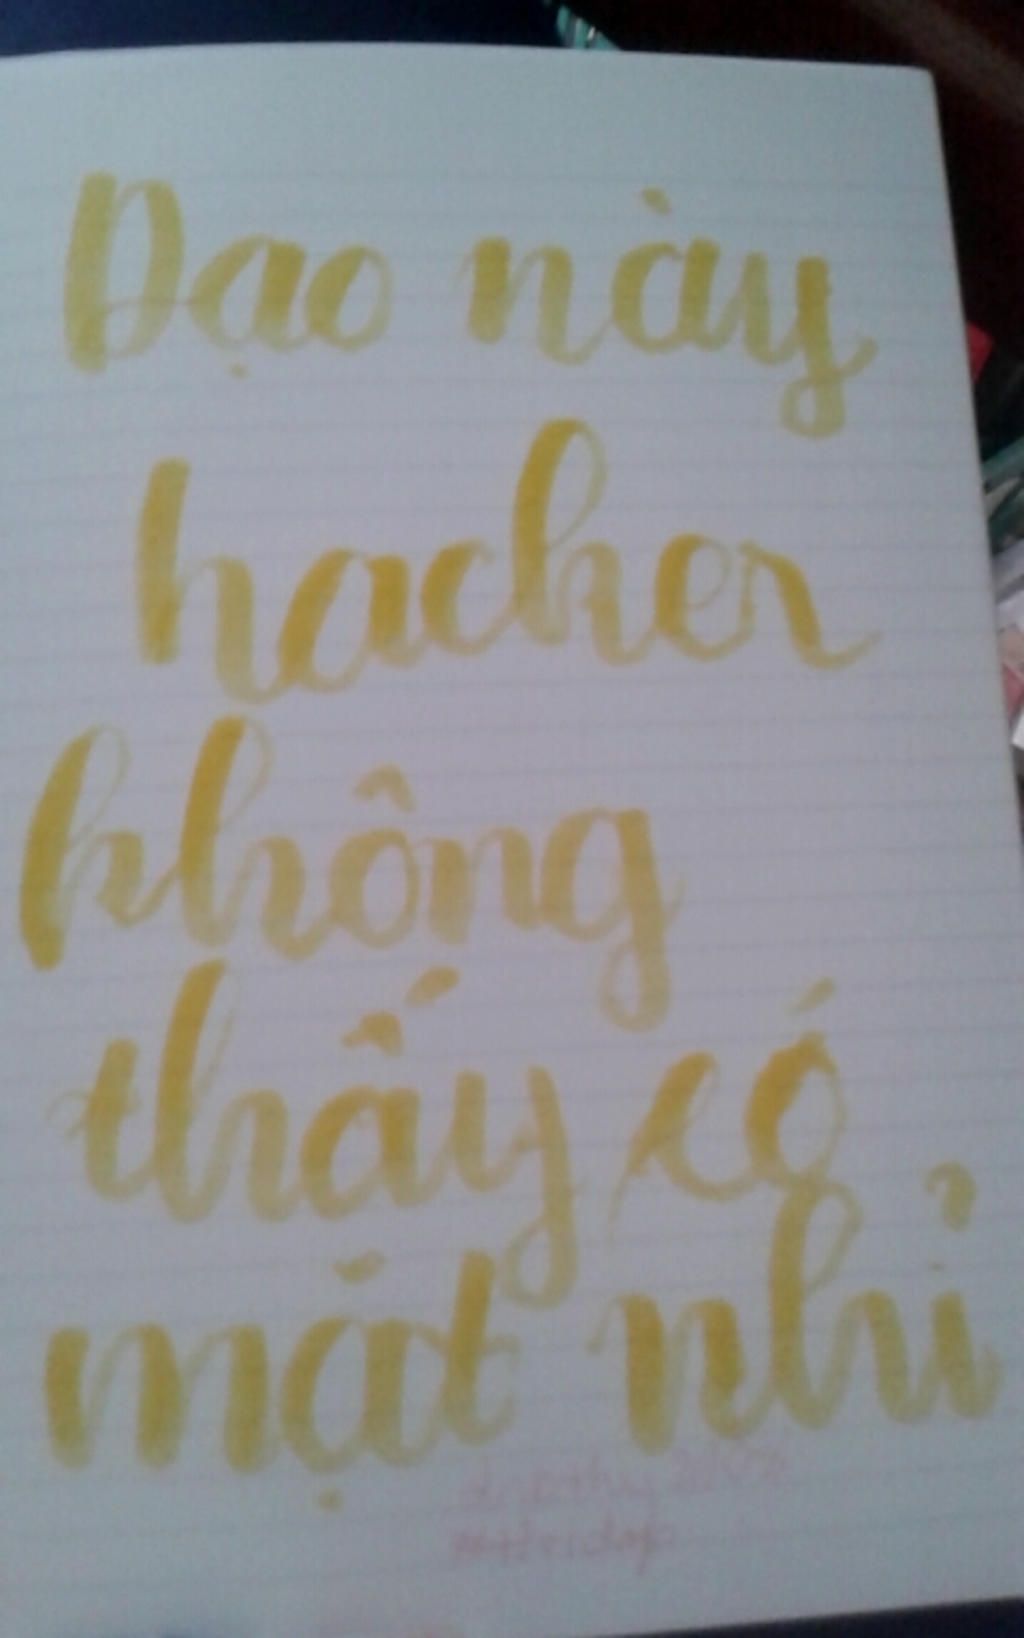 Dạo này
hacker
không
thấy có
mặt nhỉ